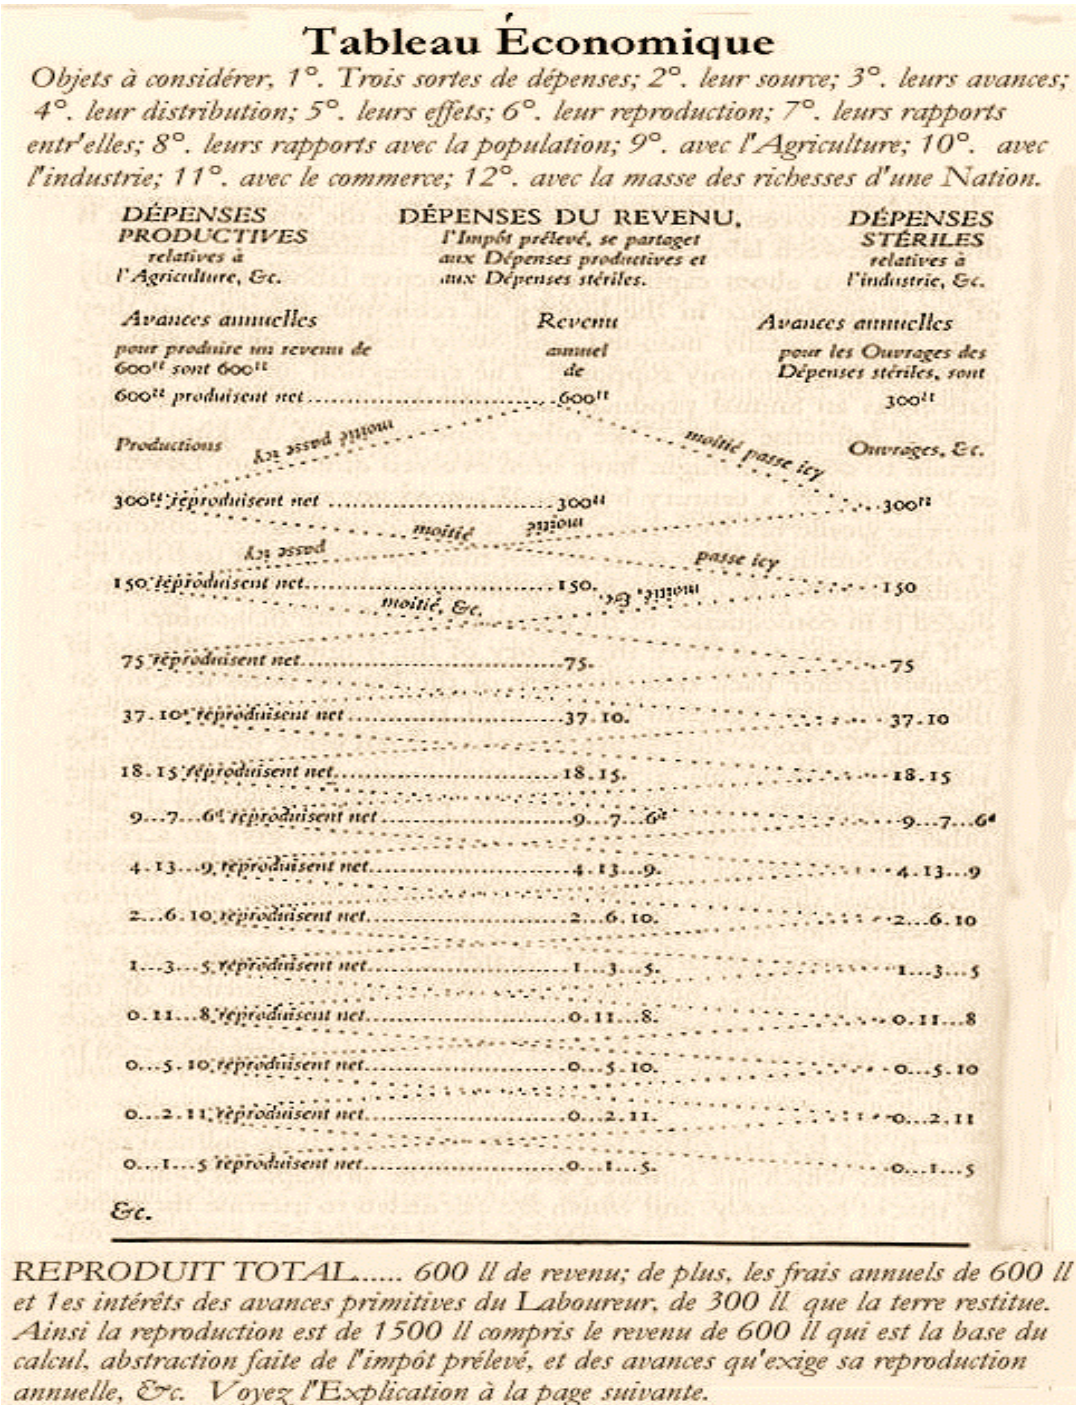 Tableau Économique
Objets à considérer, 1°. Trois sortes de dépenses; 2°. leur source; 3°. leurs avances;
4°. leur distribution; 5°. leurs effets; 6°. leur reproduction; 7°. leurs rapports
entr'elles; 8°. leurs rapports avec la population; 9°. avec l'Agriculture; 10°. avec
l'industrie; 11°. avec le commerce; 12°. avec la masse des richesses d'une Nation.
DÉPENSES
PRODUCTIVES
relatives à
l'Agriculture, &c.
DÉPENSES DU REVENU,
l'Impôt prélevé, se partaget
aux Dépenses productives et
aux Dépenses stériles.
DÉPENSES
STÉRILES
relatives à
l'industrie, &c.
Avances annuelles
pour produire un revenu de
600ll sont 600ll
Revenu
annuel
de
Avances annuelles
pour les Ouvrages des
Dépenses stériles, sont
600ll produisent net.......... 600ll 300ll
Productions moitié passe icy moitié passe icy Ouvrages, &c.
300ll reproduisent net.......... 300ll 300ll
moitié moitié
passe icy passe icy
150 reproduisent net.......... 150. 150
moitié, &c. moitié, &c.
75 reproduisent net.......... 75. 75
37.10s reproduisent net.......... 37.10. 37.10
18.15 reproduisent net.......... 18.15. 18.15
9...7...6d reproduisent net.......... 9...7...6d 9...7...6d
4.13...9 reproduisent net.......... 4.13...9. 4.13...9
2...6.10 reproduisent net.......... 2...6.10. 2...6.10
1...3...5 reproduisent net.......... 1...3...5. 1...3...5
0.11...8 reproduisent net.......... 0.11...8. 0.11...8
0...5.10 reproduisent net.......... 0...5.10. 0...5.10
0...2.11 reproduisent net.......... 0...2.11. 0...2.11
0...1...5 reproduisent net.......... 0...1...5. 0...1...5
&c.
REPRODUIT TOTAL...... 600 ll de revenu; de plus, les frais annuels de 600 ll
et 1es intérêts des avances primitives du Laboureur, de 300 ll que la terre restitue.
Ainsi la reproduction est de 1500 ll compris le revenu de 600 ll qui est la base du
calcul, abstraction faite de l'impôt prélevé, et des avances qu'exige sa reproduction
annuelle, &c. Voyez l'Explication à la page suivante.